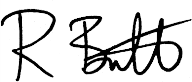 R Butt